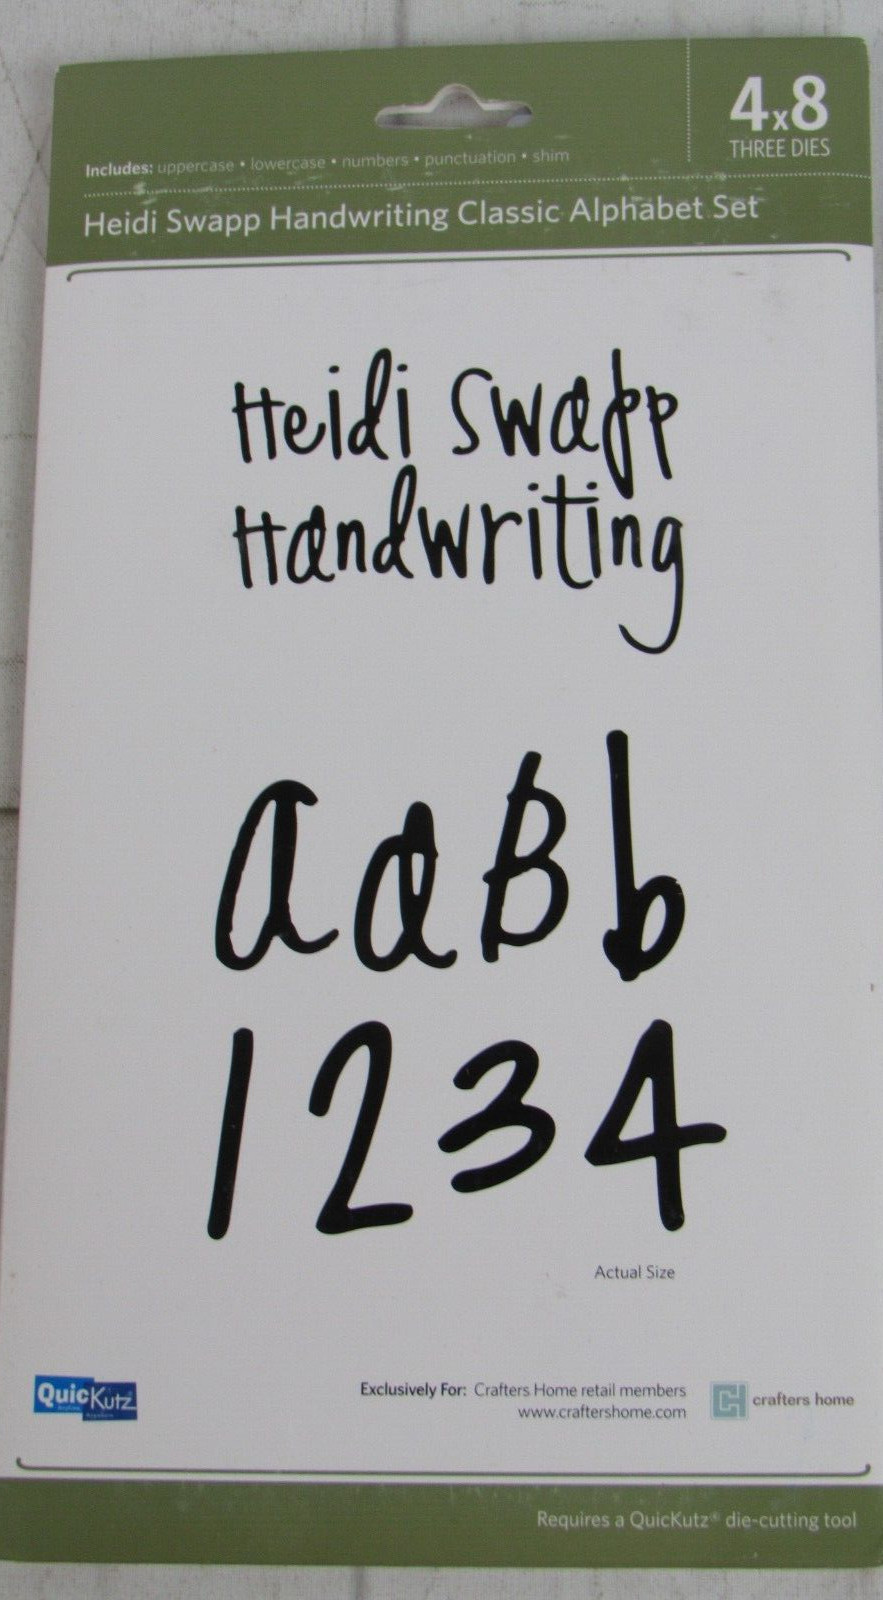 4x8
THREE DIES
Includes: uppercase • lowercase • numbers • punctuation • shim
Heidi Swapp Handwriting Classic Alphabet Set
Heidi Swapp
Handwriting
a a B b
1 2 3 4
Actual Size
QuicKutz
Exclusively For: Crafters Home retail members
www.craftershome.com
CH crafters home
Requires a QuicKutz® die-cutting tool